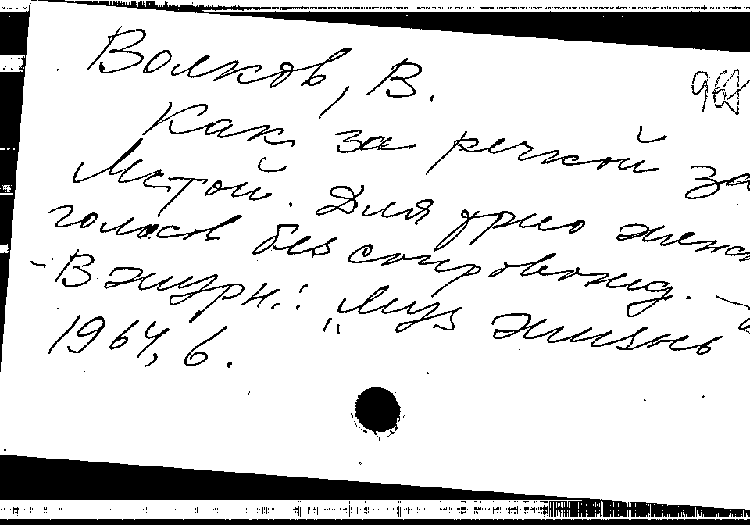 Волков, В.
968
Как за речкой за
Мстой. Для трио женс
голосов без сопровожд. —
- В журн.: „Муз жизнь
1964, 6.